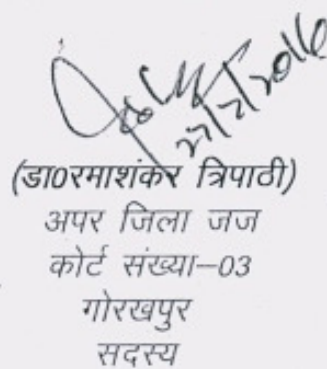 27/2/2016
(डा0रमाशंकर त्रिपाठी)
अपर जिला जज
कोर्ट संख्या–03
गोरखपुर
सदस्य